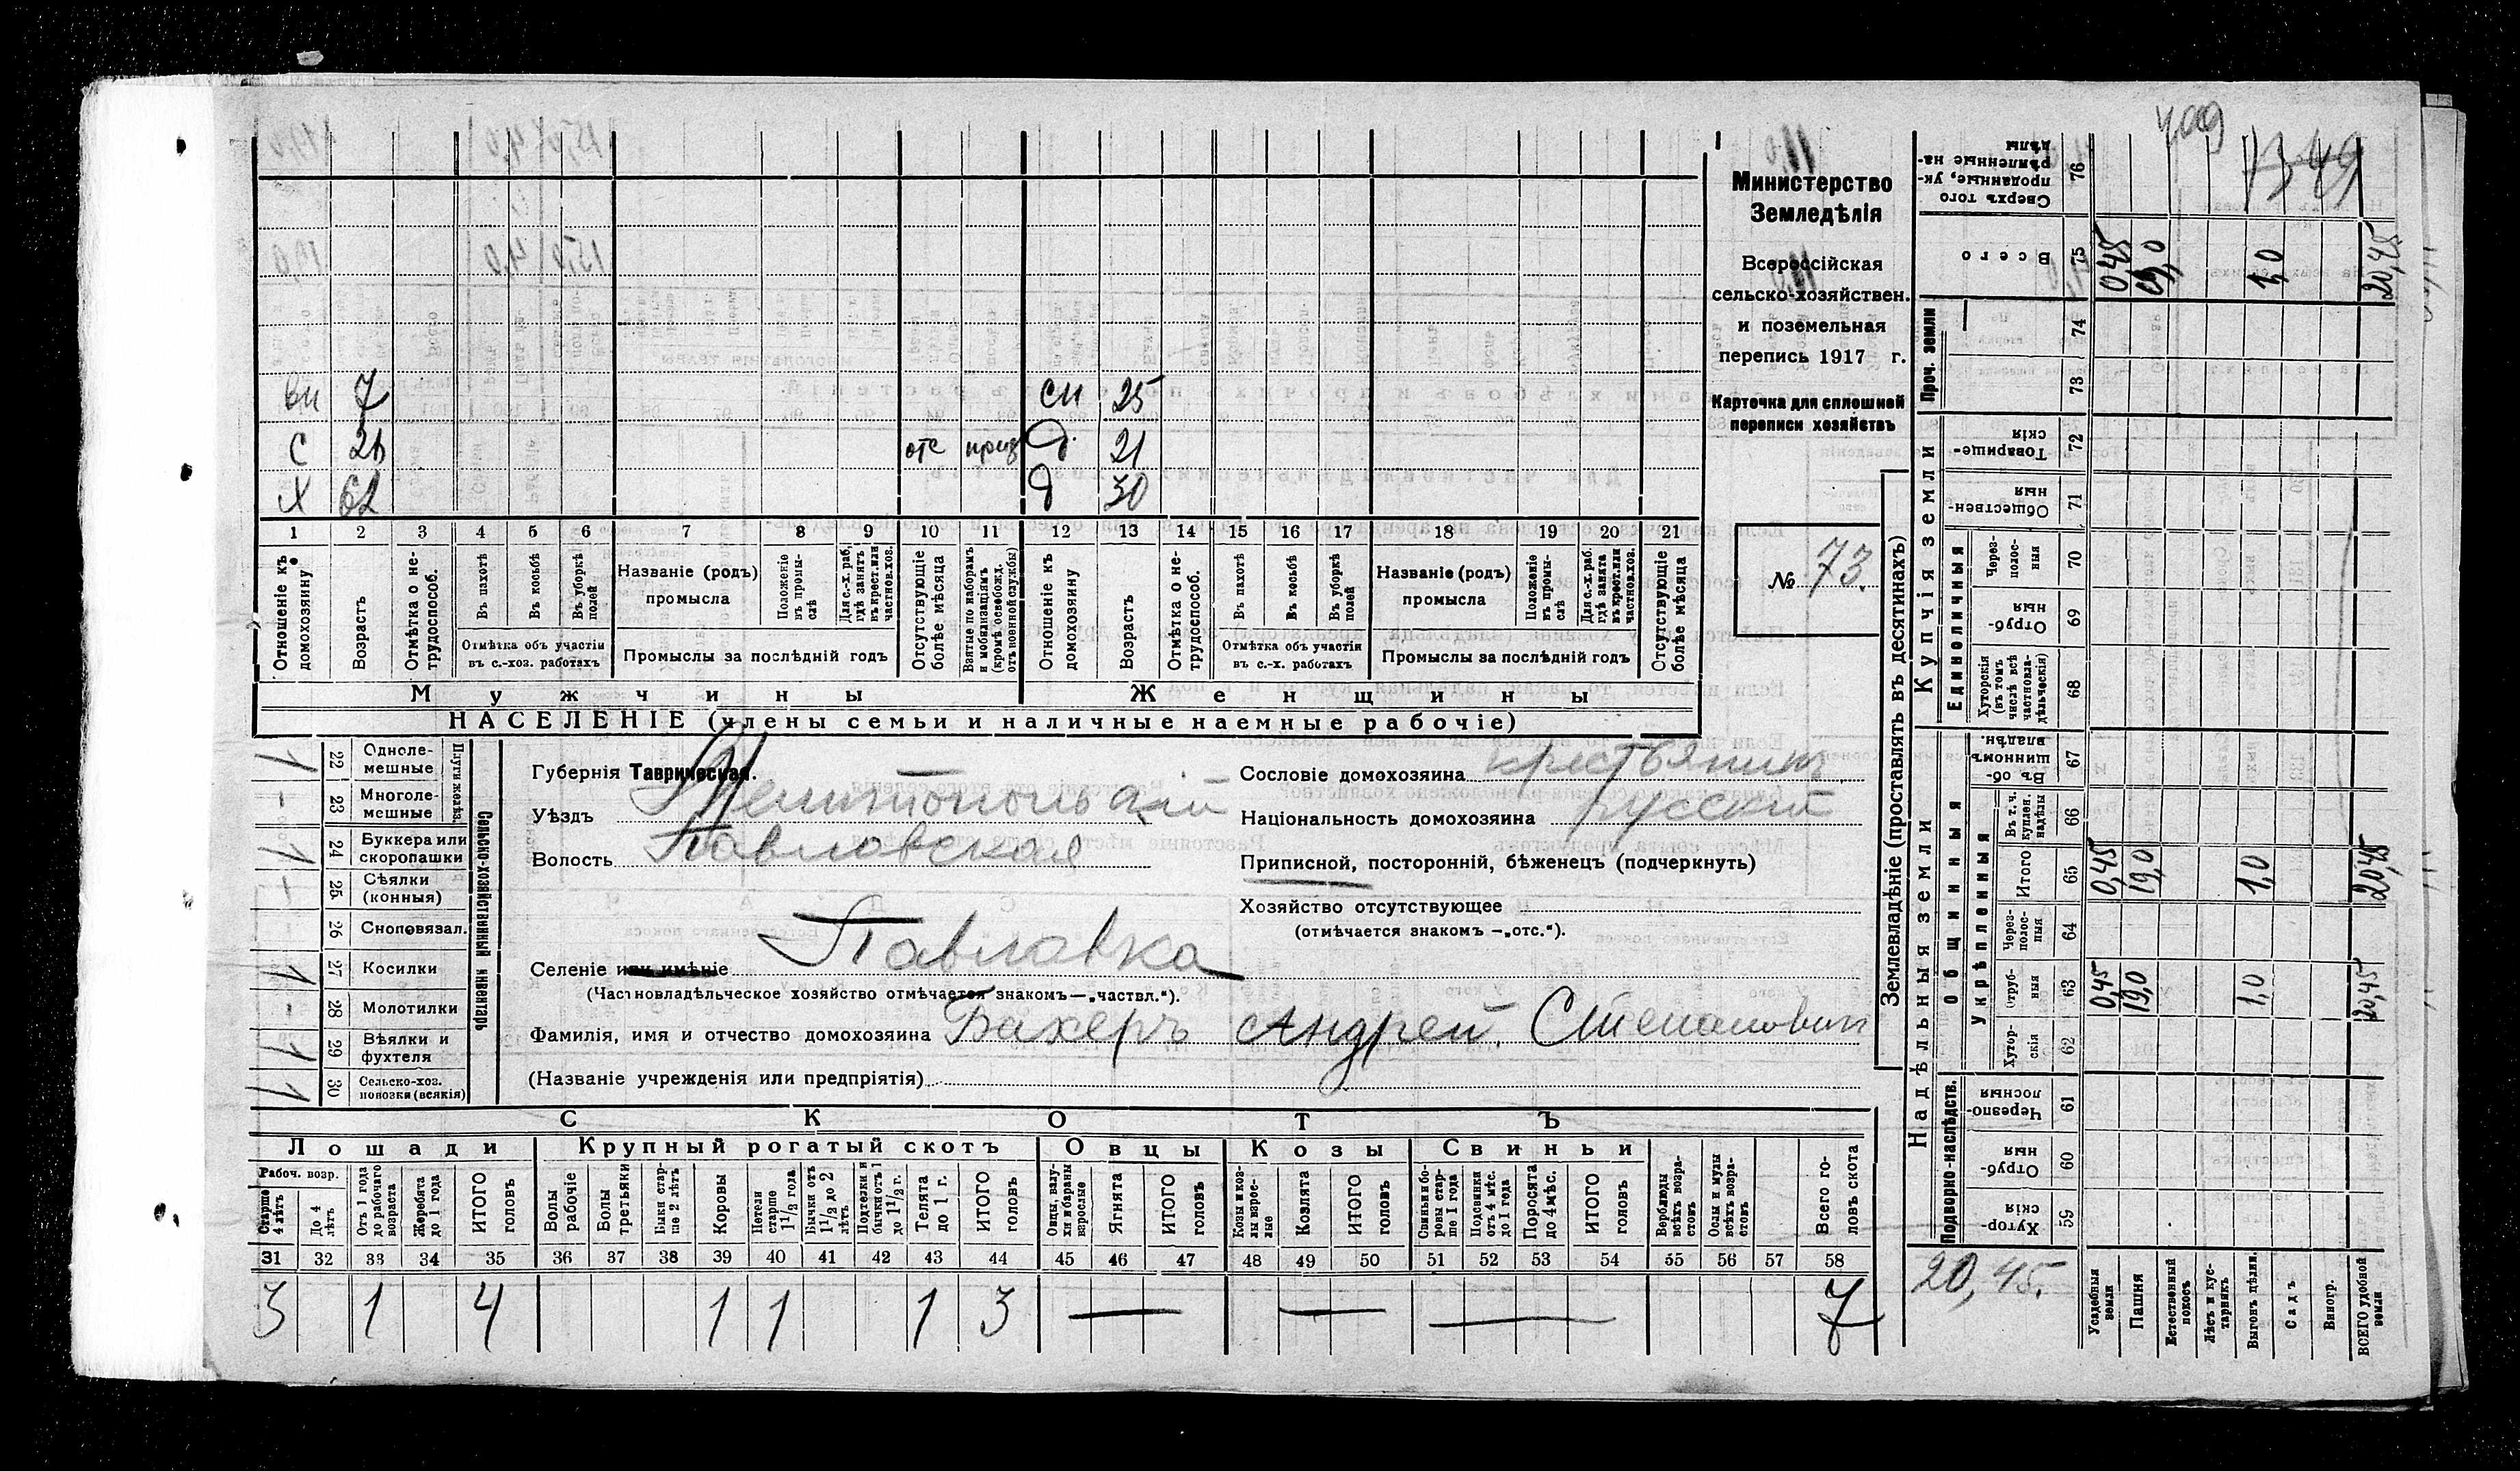 409
73 49
Министерство
Земледѣлія
Всероссійская
сельско-хозяйствен.
и поземельная
перепись 1917 г.
Карточка для сплошной
переписи хозяйствъ
№ 73.
вн 7 сн 25
С отс приз д 21
Х 62 д 30
1 2 3 4 5 6 7 8 9 10 11 12 13 14 15 16 17 18 19 20 21
Отношеніе къ домохозяину
Возрастъ
Отмѣтка о не-трудоспособ.
Въ пахотѣ
Въ косьбѣ
Въ уборкѣ полей
Отмѣтка объ участіи
въ с.-хоз. работахъ
Названіе (родъ)
промысла
Положеніе въ промы-слѣ
Для с.-х. раб. гдѣ занятъ въ крест. или частнов. хоз.
Промыслы за послѣдній годъ
Отсутствующіе болѣе мѣсяца
Взятые по наборамъ и мобилизаціямъ (кромѣ освобожд. отъ воинной службы)
Отношеніе къ домохозяину
Возрастъ
Отмѣтка о не-трудоспособ.
Въ пахотѣ
Въ косьбѣ
Въ уборкѣ полей
Отмѣтка объ участіи
въ с.-х. работахъ
Названіе (родъ)
промысла
Положеніе въ промы-слѣ
Для с.-х. раб. гдѣ занята въ крест. или частнов. хоз.
Промыслы за послѣдній годъ
Отсутствующіе болѣе мѣсяца
Мужчины Женщины
НАСЕЛЕНІЕ (члены семьи и наличные наемные рабочіе)
Сельско-хозяйственный инвентарь
Плуги желѣз.
1 22 Одноле-мешные
- 23 Многоле-мешные
1 24 Буккера или скоропашки
- 25 Сѣялки (конныя)
- 26 Сноповязал.
1 27 Косилки
- 28 Молотилки
1 29 Вѣялки и фухтеля
1 30 Сельско-хоз. повозки (всякія)
Губернія Таврическая.
Уѣздъ Мелитопольскій
Волость Павловская
Селеніе или имѣніе Павлавка
(Частновладѣльческое хозяйство отмѣчается знакомъ—„частвл.“).
Фамилія, имя и отчество домохозяина Бахеръ Андрей. Степанович
(Названіе учрежденія или предпріятія)
Сословіе домохозяина крестьянин
Національность домохозяина русский
Приписной, посторонній, бѣженецъ (подчеркнуть)
Хозяйство отсутствующее
(отмѣчается знакомъ —„отс.“).
СКОТЪ
Лошади Крупный рогатый скотъ Овцы Козы Свиньи
Рабоч. возр.
Старше 4 лѣтъ
До 4 лѣтъ
Отъ 1 года до рабочаго возраста
Жеребята до 1 года
ИТОГО головъ
Волы рабочіе
Волы третьяки
Быки стар-ше 2 лѣтъ
Коровы
Нетели старше 1½ года
Бычки отъ 1½ до 2 лѣтъ
Подтелки и бычки отъ 1 до 1½ г.
Телята до 1 г.
ИТОГО головъ
Овцы, валу-хи и бараны взрослые
Ягнята
ИТОГО головъ
Козы и коз-лы взрос-лые
Козлята
ИТОГО головъ
Свиньи и бо-ровы стар-ше 1 года
Подсвинки отъ 4 мѣс. до 1 года
Поросята до 4 мѣс.
ИТОГО головъ
Верблюды всѣхъ возра-стовъ
Ослы и мулы всѣхъ возра-стовъ
Всего го-ловъ скота
31 32 33 34 35 36 37 38 39 40 41 42 43 44 45 46 47 48 49 50 51 52 53 54 55 56 57 58
3 1 4 1 1 1 3 — — — 7
Землевладѣніе (проставлять въ десятинахъ)
Надѣльныя земли Купчія земли Проч. земли
Подворно-наслѣдств.
Общинныя
Укрѣпленныя
Единоличныя
Хутор-скія 59
Отруб-ныя 60
Черезпо-лосныя 61
Хутор-скія 62
Отруб-ныя 63
Черес-полос-ныя 64
Итого 65
Въ т. ч. куплен. надѣлы 66
Въ об-щинномъ владѣн. 67
Хуторскія (въ томъ числѣ всѣ частновла-дѣльческія) 68
Отруб-ныя 69
Через-полос-ныя 70
Обществен-ныя 71
Товарище-скія 72
73
74
Всего 75
Сверхъ того проданные, ук-рѣпленные на-дѣлы 76
20,45.
Усадебныя земли 0,45 0,45 0,45
Пашня 19,0 19,0 19,0
Естественный покосъ
Лѣсъ и кус-тарникъ
Выгонъ дѣлин. 1,0 1,0 1,0
Садъ
Виногр.
ВСЕГО удобной земли 20,45 20,45 20,45